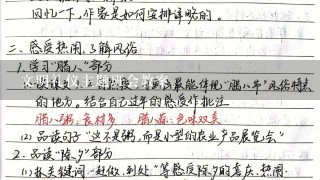 回忆一下,作家是如何安排详略的。
二、感受热闹,了解风俗
1.学习“腊八”部分
最能体现“腊八节”风俗特点
的地方。结合自己过年的感受作批注
腊八粥:食材多 腊八蒜:色味双美
(2)品读句子“这不是粥,而是小型的农业产品展览会”
2.品读“除夕”部分
(1)抓关键词“赶做、到处”等感受除夕的喜庆、热闹
文明礼仪主题班会教案